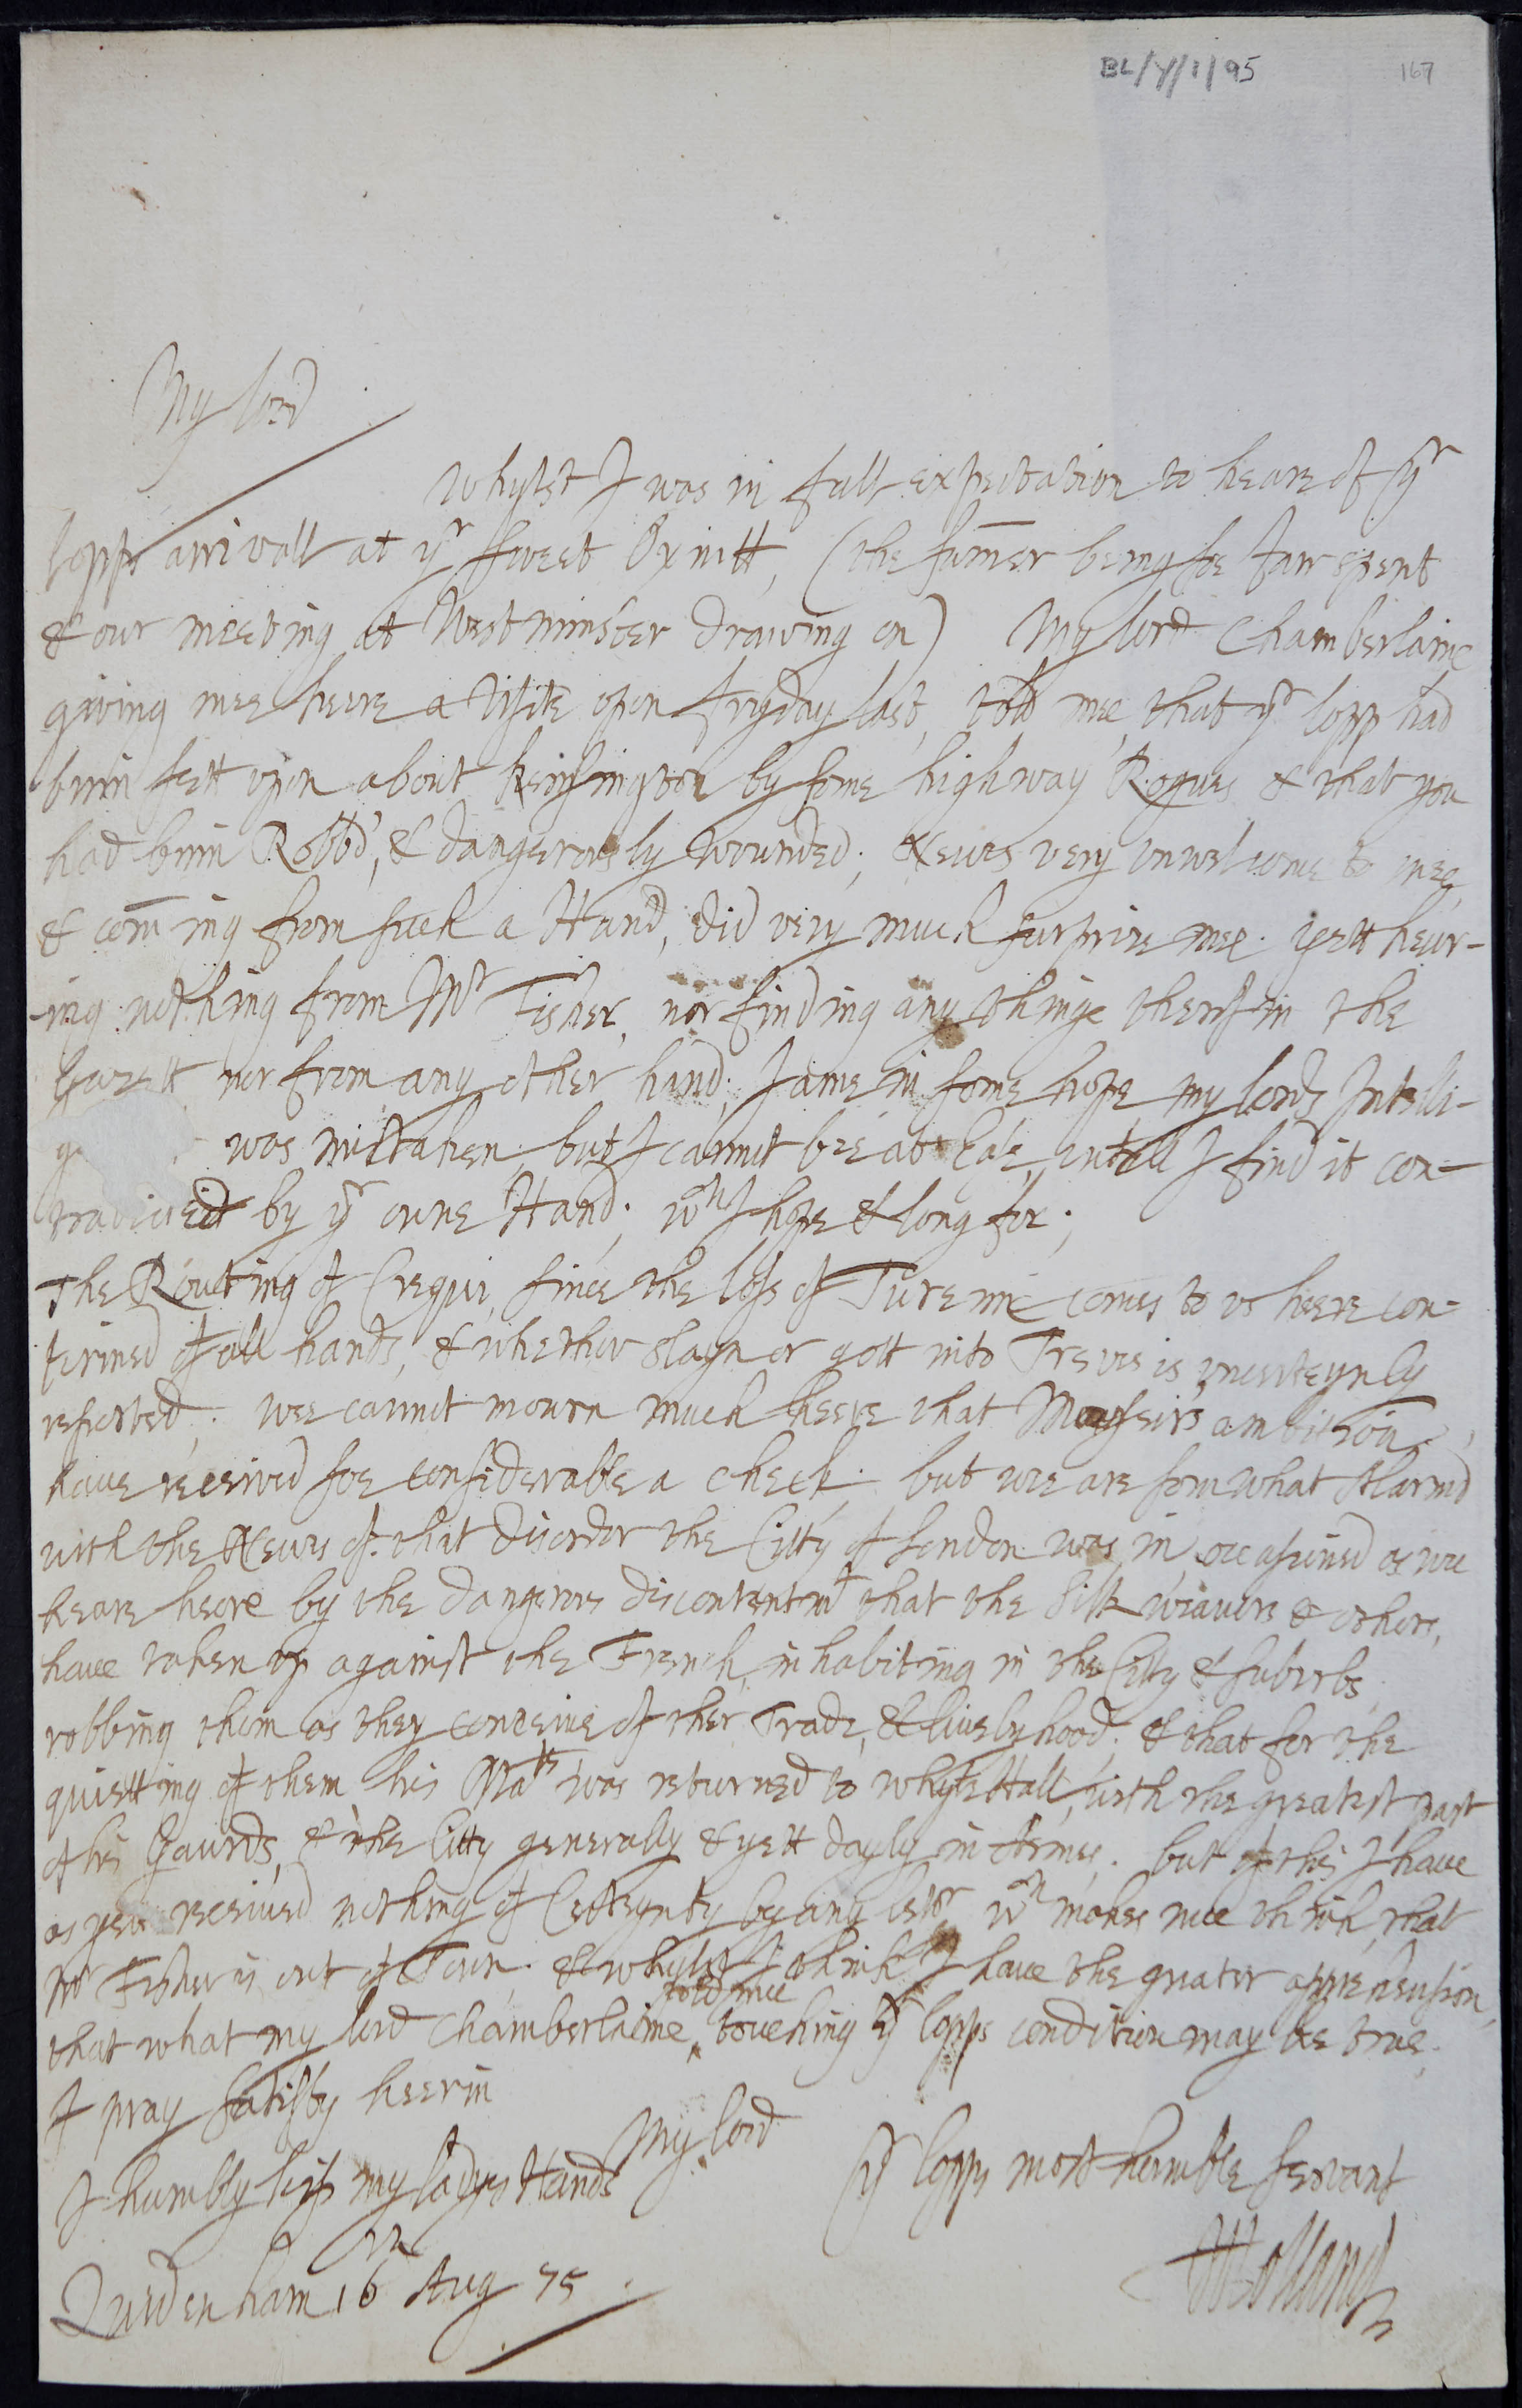 BL/Y/1/95
167
My lord
Whylst I was in full expectation to heare of yr
lopps arrivall at yr sweet Oxnitt, (the sumer being soe farr spent
& our meeting at Westminster drawing on) My lord Chamberlaine
giving mee heere a visite upon fryday last, told mee, that yr lopp had
binn sett upon about Kensington by some highway Rogues & that you
had binn Robb'd, & dangerously wounded; Newes very unwelcome to mee,
& coming from such a Hand, did very much surprise mee. yett hear-
ing nothing from Mr Fisher, nor finding any thinge therof in the
Gazett nor from any other hand; I ame in some hope my lords Intelli-
g was mistaken; but I cannot bee at Ease, untell I find it con-
tradicted by yr owne Hand; wch I hope & long for;
The Routing of Crequi, since the loss of Turenne comes to us heere con-
firmed of all hands, & whether slayn or gott into Treves is uncerteynly
reported; wee cannot mourn much heere that Monseirs ambition
have received soe considerable a check. but wee are somwhat Alarmd
with the Newes of that disorder the Citty of London was in, occasiined as wee
heare heere by the dangerous discontentmt that the Silk weavers & others,
have taken up against the French, inhabiting in the Citty & suburbs,
robbing them as they conceive of ther Trade, & livelyhood; & that for the
quietting of them his Matie was returned to Whyte Hall, with the greatest part
of his Gaurds, & the Citty generally & yett dayly in Armes; but of this I have
as yett received nothing of Certeynty by any lettr wch makes mee think, that
Mr Fisher is out of Town. & whylst I think I have the greater apprehension,
that what my lord Chamberlaine told mee touching yr lopps condition may be true;
I pray satisfy heerin
My lord
yr lopps most humble servant
I humbly kiss my ladyes Hands
JHolland
Quidenham 16 Aug 75